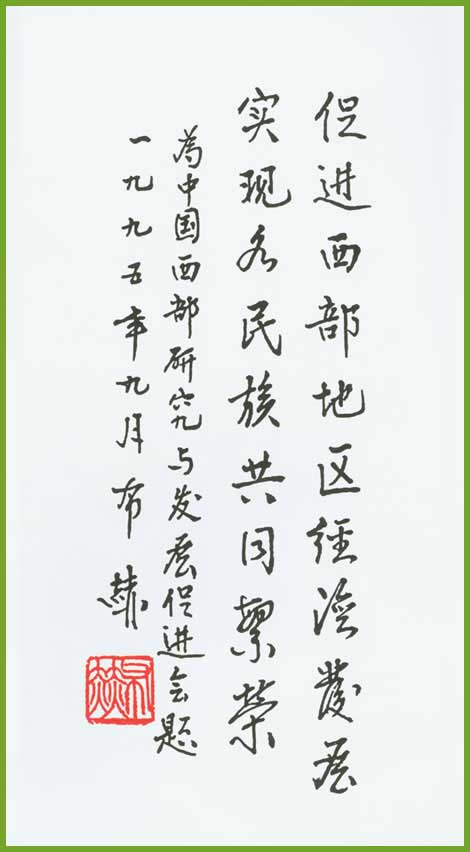 促进西部地区经济發展
实现各民族共同繁荣
为中国西部研究与发展促进会题
一九九五年九月布赫
布赫